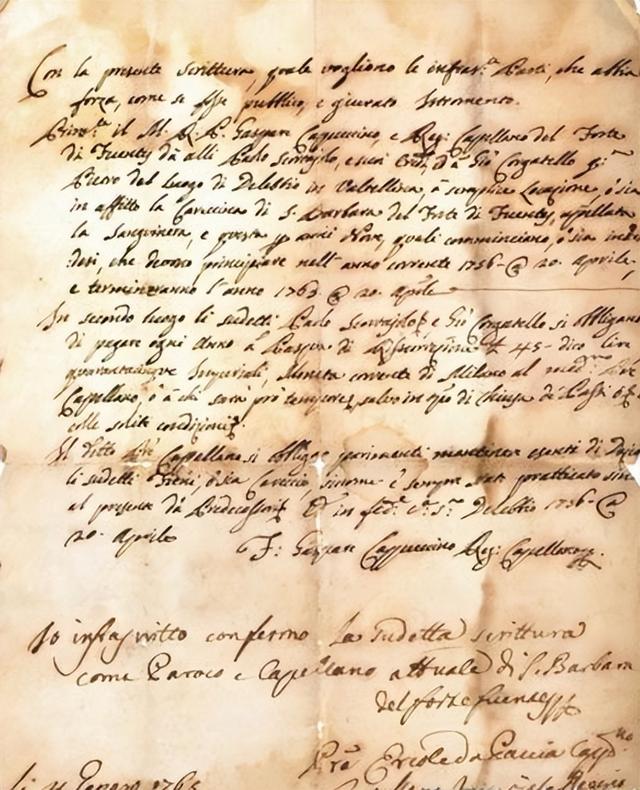 Con la presente Scrittura, quale vogliono le infras.te Parti, che abbia
forza, come se fosse publico, e giurato Istromento.
Prim.te il M. R. P. Gaspare Capuccino, e Reg: Capellano del Forte
di Fuentes dà alli Paolo Scortajolo, e suoi Eredi, e à Gio Corgatello q:m
Piero del Luogo di Delebbio in Valtellina, à semplice Locazione, ò sia
in affitto la Careccina di S. Barbara del Forte di Fuentes, appellata
la Sanguinera, e questa p anni Nove, quali comminciano, ò sia
che devono principiare nell'anno corrente 1756 @ 20. Aprile,
e termineranno l'anno 1763 @ 20. Aprile
In secondo luogo li sudetti Paolo Scortajolo e Gio Corgatello si obligano
di pagare ogni Anno à Pasqua di 45- dico lire
quarantacinque Imperiali, Moneta corrente di Milano al med.mo
Capellano, ò à chi sarà prò tempore, salvo in
colle solite condizioni.
Il detto Capellano si obliga parimenti mantenere esenti di
li sudetti Fieni, ò sia Careccio, siccome è sempre stato pratticato sin
al presente dà Predecessori. in fed. Delebbio 1756 @
20. Aprile F: Gaspare Cappuccino Reg: Capellano
Io infrascritto confermo la sudetta scrittura
come Paroco e Capellano attuale di S. Barbara
del forte fuentes
Prè Ercole da
li 4 Genaro 1765